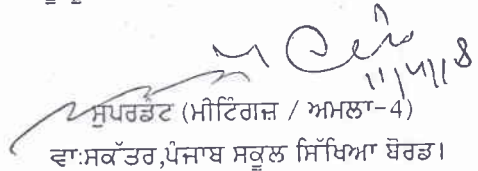 11/4/18
ਸੁਪਰਡੰਟ (ਮੀਟਿੰਗਜ਼ / ਅਮਲਾ-4)
ਵਾ:ਸਕੱਤਰ,ਪੰਜਾਬ ਸਕੂਲ ਸਿੱਖਿਆ ਬੋਰਡ।